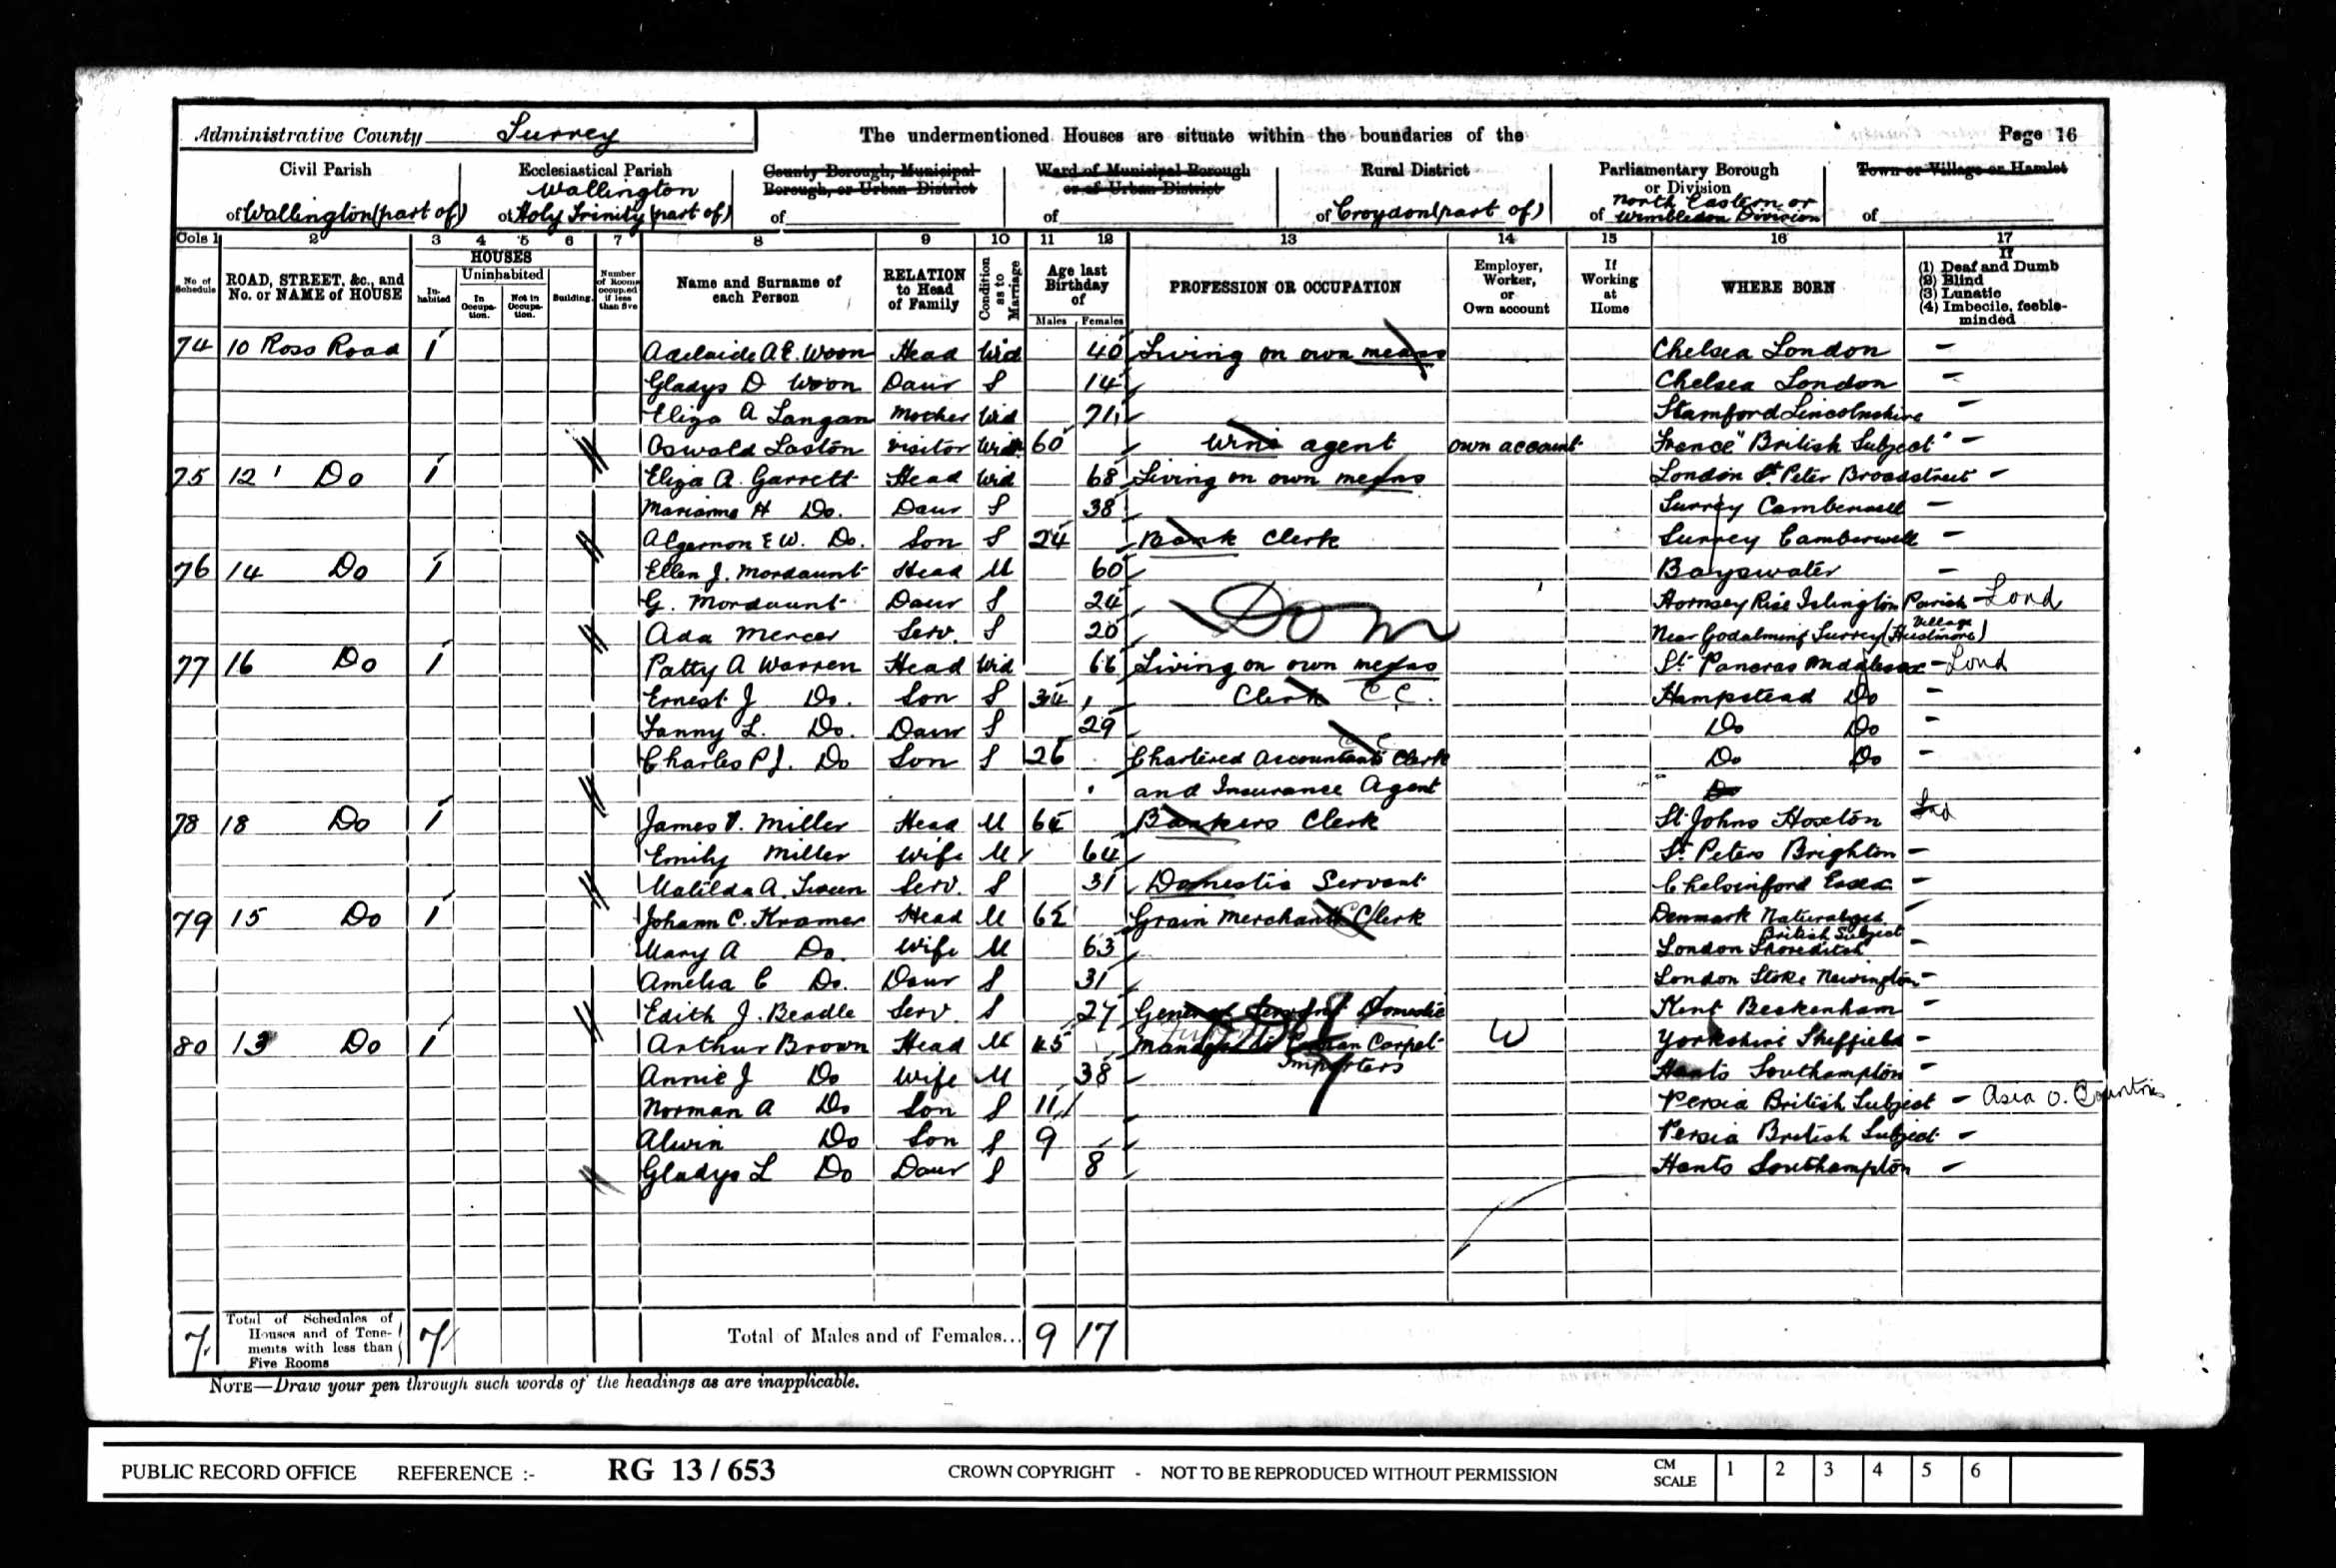 Administrative County Surrey The undermentioned Houses are situate within the boundaries of the Page 16
Civil Parish Ecclesiastical Parish County Borough, Municipal Borough, or Urban District Ward of Municipal Borough or of Urban District Rural District Parliamentary Borough or Division Town or Village or Hamlet
of Wallington (part of) of Wallington Holy Trinity (part of) of of of Croydon (part of) of North Eastern or Wimbledon Division of
Cols 1 2 3 4 5 6 7 8 9 10 11 12 13 14 15 16 17
No of Schedule ROAD, STREET, &c., and No. or NAME of HOUSE HOUSES Inhabited Uninhabited In Occupation. Not in Occupation. Building. Number of Rooms occupied if less than five Name and Surname of each Person RELATION to Head of Family Condition as to Marriage Age last Birthday of Males Females PROFESSION OR OCCUPATION Employer, Worker, or Own account If Working at Home WHERE BORN If (1) Deaf and Dumb (2) Blind (3) Lunatic (4) Imbecile, feeble-minded
74 10 Ross Road 1 Adelaide A E. Woon Head Wid 40 Living on own means Chelsea London -
Gladys D Woon Daur S 14 Chelsea London -
Eliza A Langan Mother Wid 71 Stamford Lincolnshire -
Oswald Laston visitor 60 agent own account "British Subject" -
75 12 Do 1 Eliza A. Garrett Head Wid 68 Living on own means London St Peter Broadstreet -
Marianne H Do. Daur S 38 Surrey Camberwell -
Algernon E W. Do. Son S 24 Bank Clerk Surrey Camberwell -
76 14 Do 1 Ellen J. Mordaunt Head M 60 Bayswater -
G. Mordaunt Daur S 24 Dom Hornsey Rise Islington Parish - Lond
Ada Mercer Serv. S 20 Near Godalming Surrey ( Village)
77 16 Do 1 Patty A Warren Head Wid 66 Living on own means St Pancras Middlesex - Lond
Ernest J Do. Son S 34 Clerk C.C. Hampstead Do -
Fanny L. Do. Daur S 29 Do Do -
Charles P J. Do Son S 26 Chartered Accountants Clerk Do Do -
and Insurance Agent Do
78 18 Do 1 James Miller Head M Bankers Clerk St Johns Hoxton
Emily Miller Wife M 64 St Peters Brighton -
Matilda A. Serv. S 31 Domestic Servant Chelmsford Essex -
79 15 Do 1 Johann C. Kramer Head M 62 Grain Merchants Clerk Denmark Naturalized British Subject -
Mary A Do. Wife M 63 London Shoreditch -
Amelia C Do. Daur S 31 London Stoke Newington -
Edith J. Beadle Serv. S 27 General Servant Domestic Kent Beckenham -
80 13 Do 1 Arthur Brown Head M 45 Manager Carpet Importers W Yorkshire Sheffield -
Annie J Do Wife M 38 Hants Southampton -
Norman A Do Son S 11 Persia British Subject - Asia O. Countries
Alwin Do Son S 9 Persia British Subject -
Gladys L Do Daur S 8 Hants Southampton -
7 Total of Schedules of Houses and of Tenements with less than Five Rooms 7 Total of Males and of Females... 9 17
NOTE—Draw your pen through such words of the headings as are inapplicable.
PUBLIC RECORD OFFICE REFERENCE :- RG 13 / 653 CROWN COPYRIGHT - NOT TO BE REPRODUCED WITHOUT PERMISSION CM SCALE 1 2 3 4 5 6